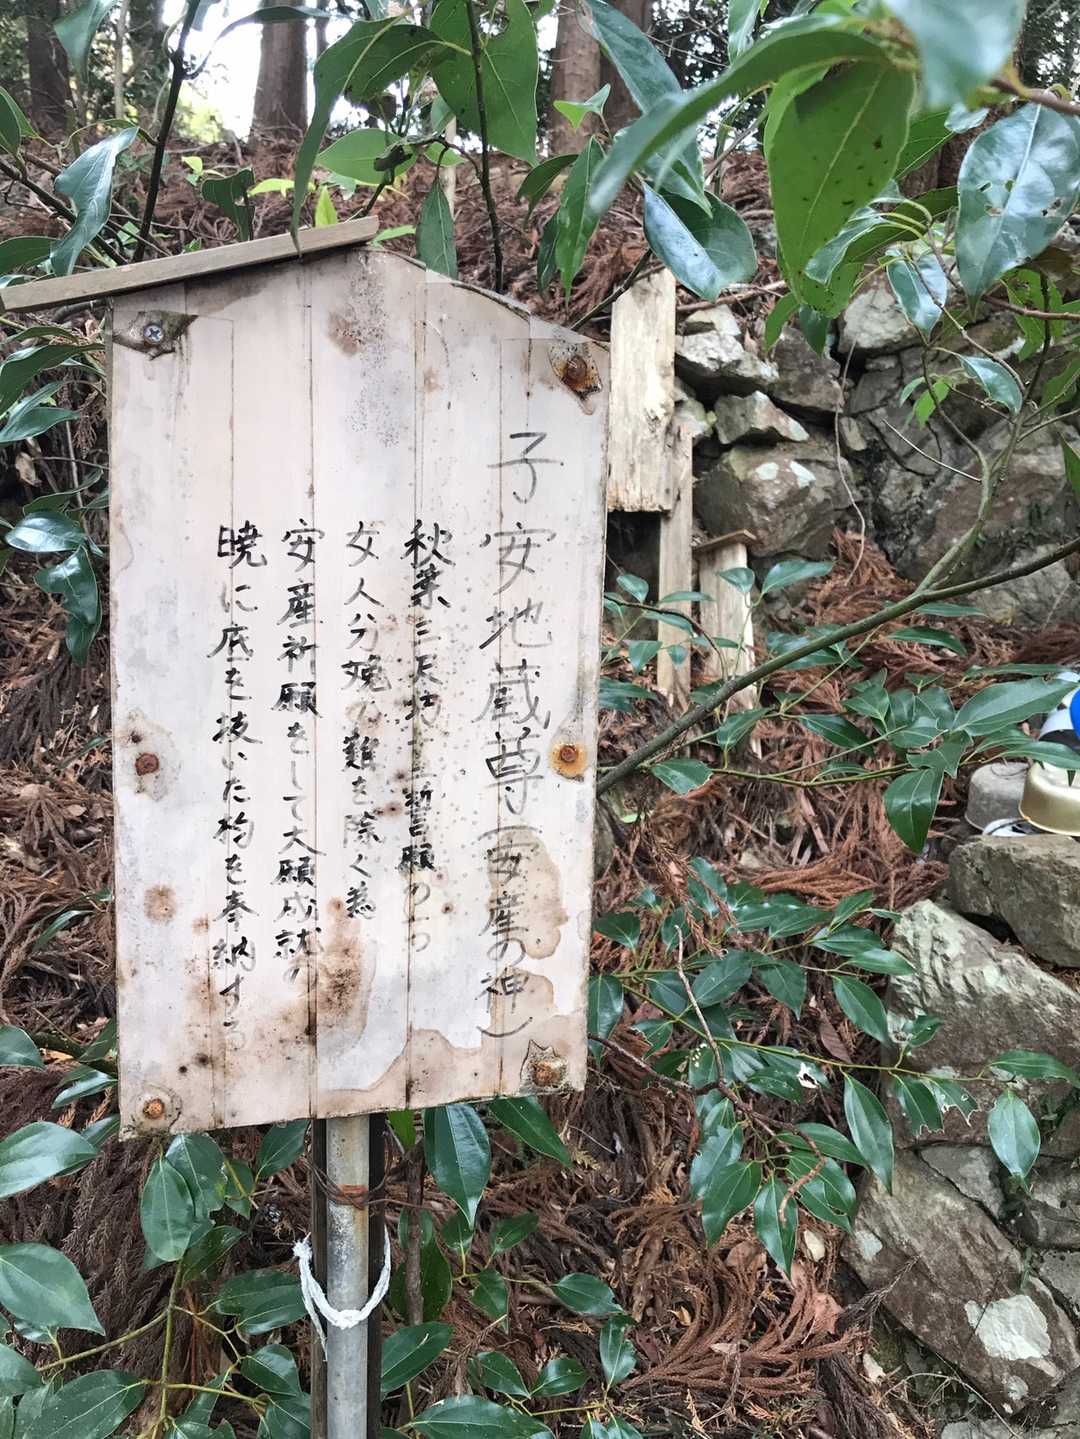 子安地蔵尊(安産の神)
秋葉三尺坊十三誓願の一つ
女人分娩の難を除く為
安産祈願をして大願成就の
暁に底を抜いた杓を奉納する